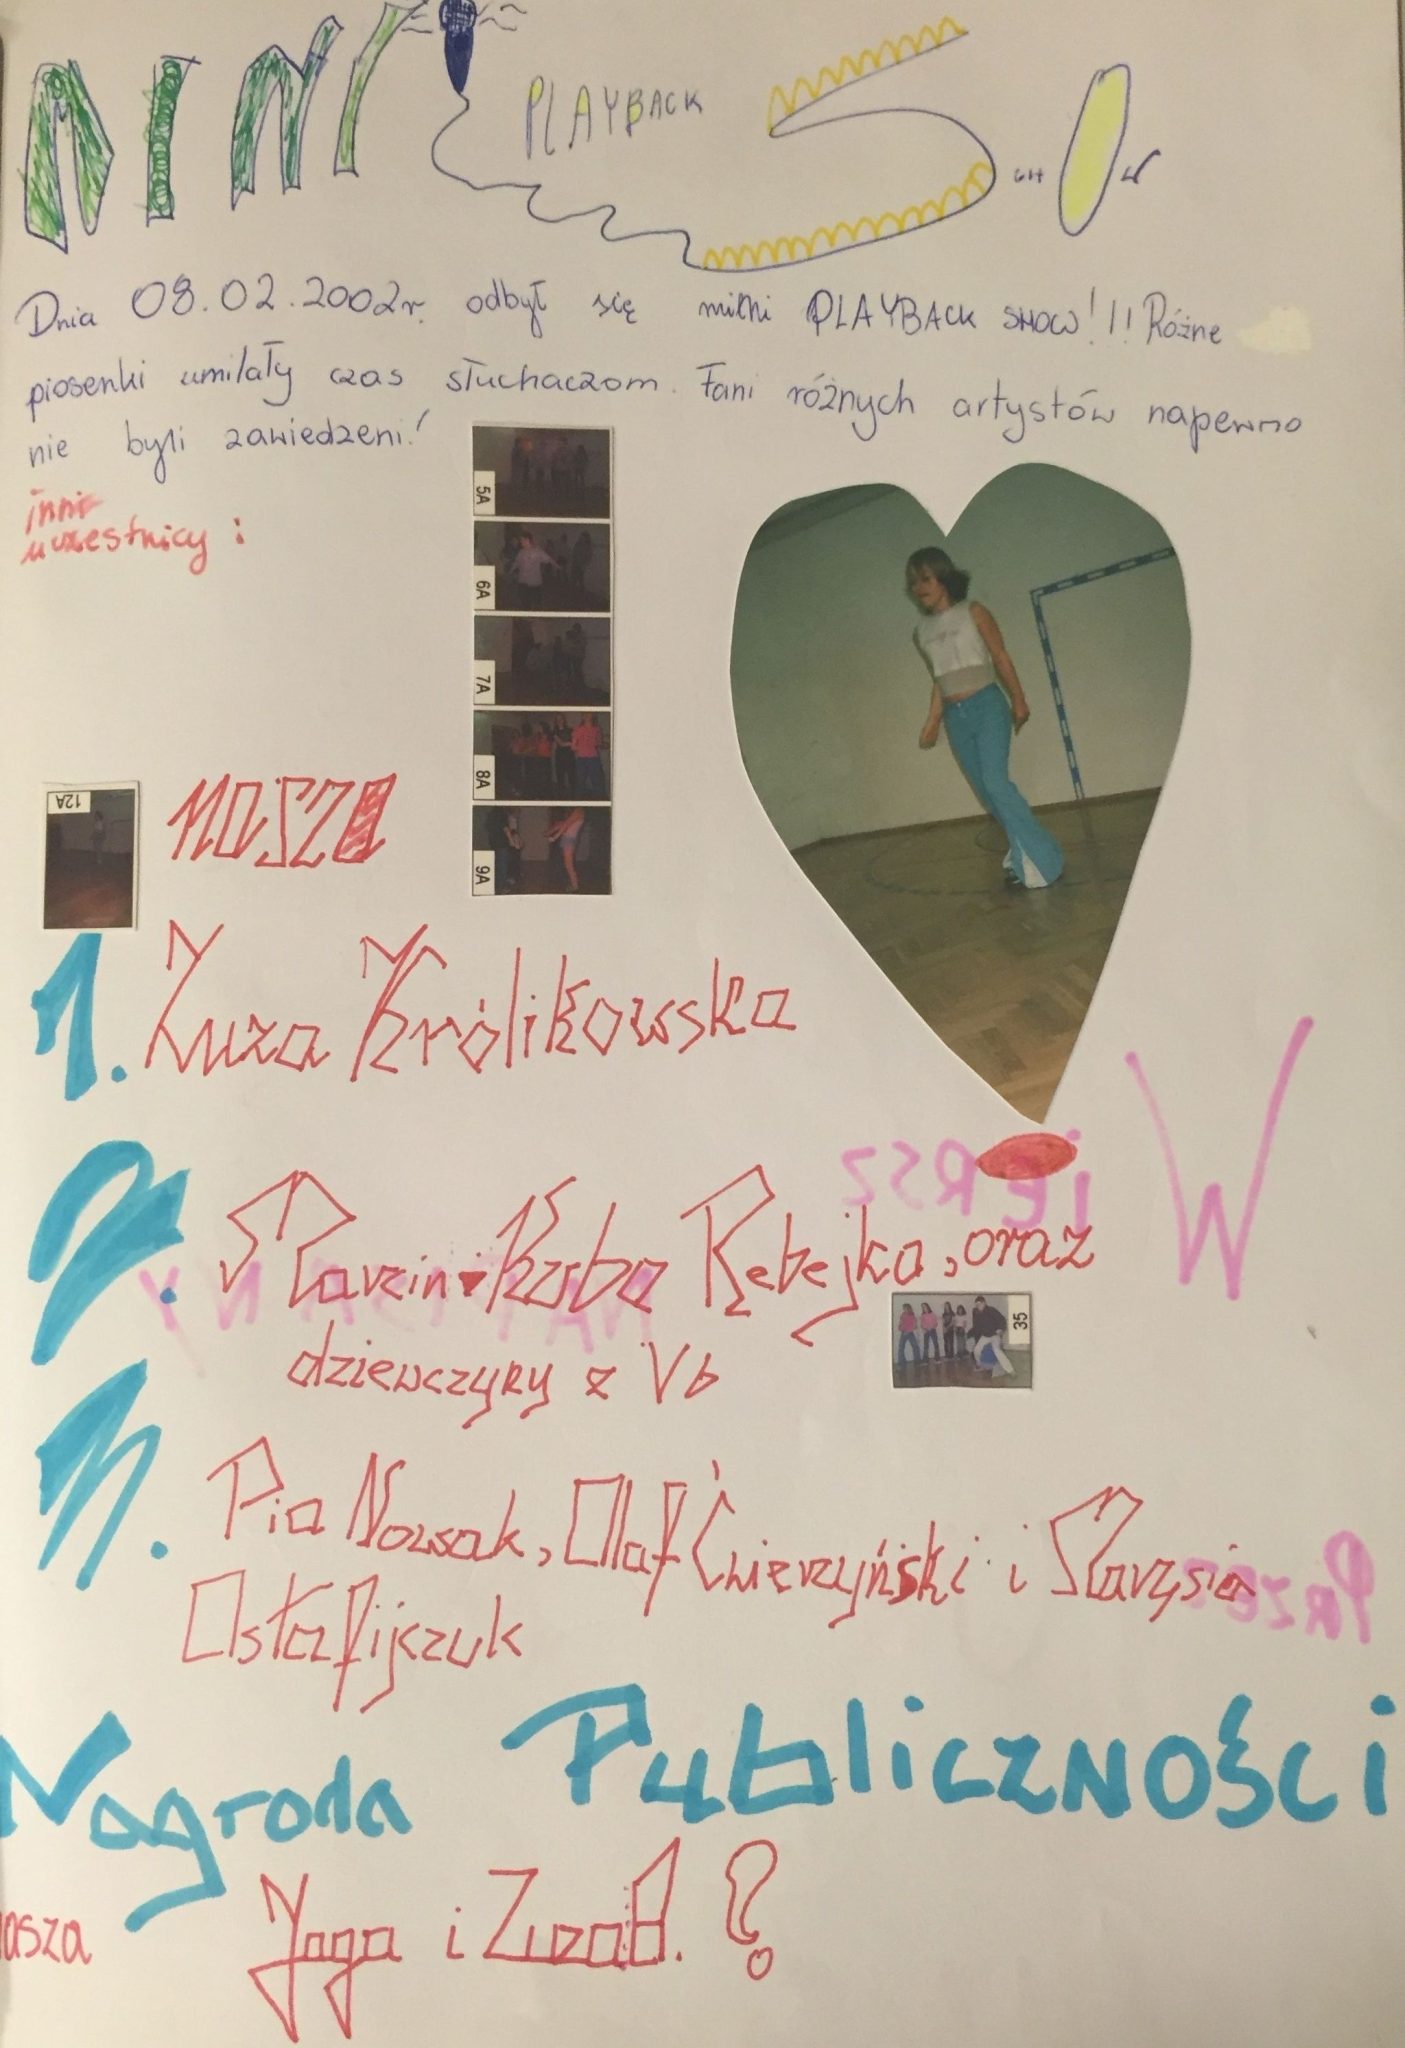 MINI PLAYBACK SHOW
Dnia 08.02.2002r. odbył się mini PLAYBACK SHOW!!! Różne
piosenki umilały czas słuchaczom. Fani różnych artystów napewno
nie byli zawiedzeni!
inni
uczestnicy:
5A
6A
7A
8A
9A
12A
nasza
1. Zuza Królikowska
WIERSZ
2. Marcin i Kuba Rębejka, oraz
NAPISANY
dziewczyny z Vb
35
3. Pia Nowak, Olaf Ćwierzyński i Marysia
PRZEZ
Ostafijczuk
Nagroda Publiczności
nasza Jaga i Zuza B. ?